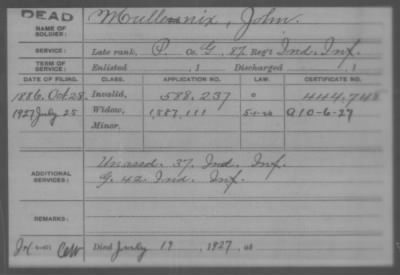 DEAD
NAME OF SOLDIER: Mullennix, John.
SERVICE: Late rank, P Co. G, 87 Reg't Ind. Inf.
TERM OF SERVICE: Enlisted , 1 Discharged , 1
DATE OF FILING. CLASS. APPLICATION NO. LAW. CERTIFICATE NO.
1886, Oct 28, Invalid, 588,237 444,748
1927 July 25 Widow, 1,587,111 5-1-20 A10-6-27
Minor,
ADDITIONAL SERVICES: Unassd. 37, Ind. Inf.
G. 42 Ind. Inf.
REMARKS:
Died July 19, 1927, at